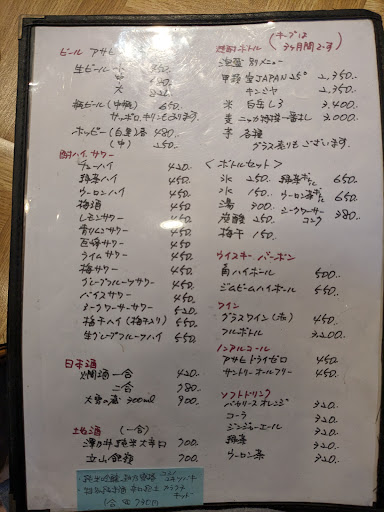 ビール アサヒ
生ビール 小 350.
中
大
瓶ビール(中瓶) 650.
サッポロ、キリンもあります
ホッピー(白・黒) 480.
(中) 250.
酎ハイ、サワー
チューハイ 420.
緑茶ハイ 450.
ウーロンハイ 450.
梅酒 450.
レモンサワー 450.
青りんごサワー 450.
巨峰サワー 450.
ライムサワー 450.
梅サワー 450.
グレープフルーツサワー 450.
バイスサワー 450.
シークワーサーサワー 520.
梅干ハイ(梅干入り) 550.
生グレープフルーツハイ 550.
日本酒
燗酒 一合 420.
二合 780.
大雪の蔵 300ml 900.
地酒 (一合)
澤乃井 純米大辛口 700.
立山 銀嶺 700.
焼酎ボトル (キープは3ヶ月間です)
泡盛 別メニュー
甲類 宝JAPAN 25° 2,350.
キンミヤ 2,350.
米 白岳しろ 3,400.
麦 2,000.
芋 各種
グラス売りもございます.
<ボトルセット>
氷 250. 緑茶ボトル 650.
水 150. ウーロン茶ボトル 650.
湯 300. シークワーサー 380.
炭酸 250.
梅干 150.
ウイスキー バーボン
角ハイボール 500.
ジムビームハイボール 550.
ワイン
グラスワイン(赤) 450.
フルボトル 3,200.
ノンアルコール
アサヒ ドライゼロ 450.
サントリー オールフリー 450.
ソフトドリンク
バヤリースオレンジ 320.
コーラ 320.
ジンジャーエール 320.
緑茶 320.
ウーロン茶 320.